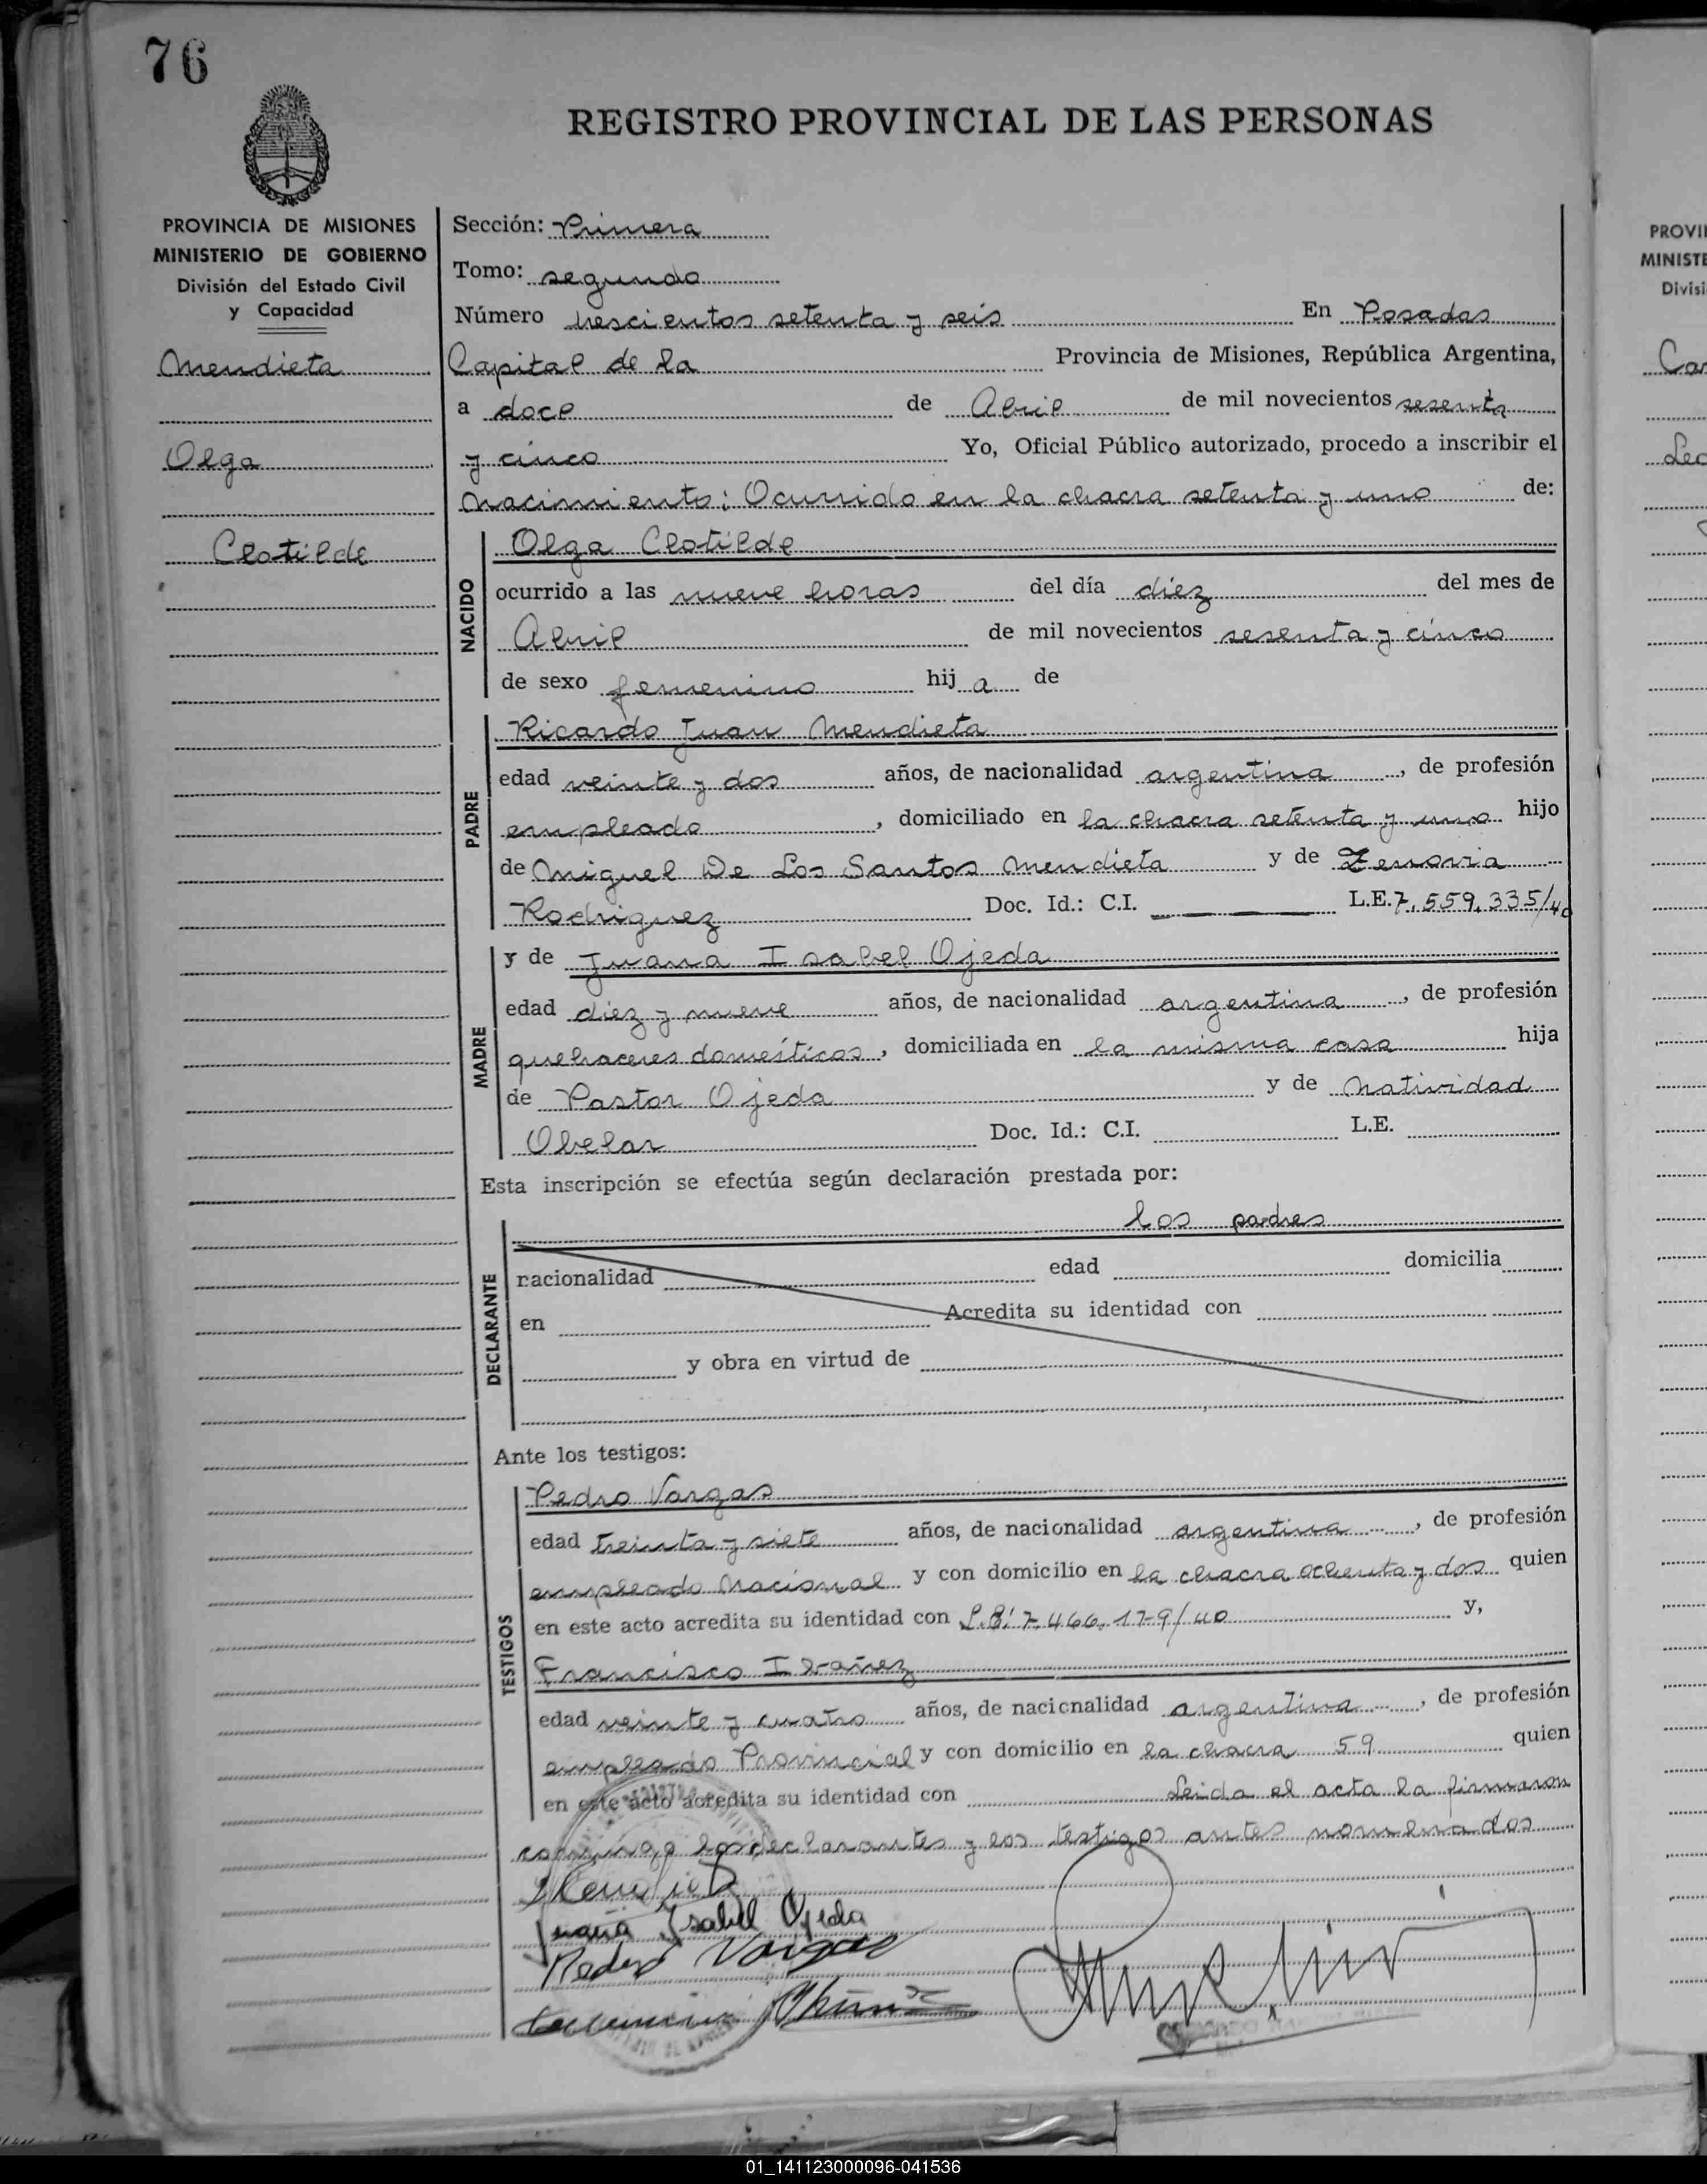 76
REGISTRO PROVINCIAL DE LAS PERSONAS
PROVINCIA DE MISIONES
MINISTERIO DE GOBIERNO
División del Estado Civil
y Capacidad
Mendieta
Olga
Clotilde
Sección: Primera
Tomo: segundo
Número trescientos setenta y seis En Posadas
Capital de la Provincia de Misiones, República Argentina,
a doce de Abril de mil novecientos sesenta
y cinco Yo, Oficial Público autorizado, procedo a inscribir el
nacimiento: Ocurrido en la chacra setenta y uno de:
NACIDO
Olga Clotilde
ocurrido a las nueve horas del día diez del mes de
Abril de mil novecientos sesenta y cinco
de sexo femenino hij a de
PADRE
Ricardo Juan Mendieta
edad veinte y dos años, de nacionalidad argentina, de profesión
empleado, domiciliado en la chacra setenta y uno hijo
de Miguel De Los Santos Mendieta y de Zenovia
Rodriguez Doc. Id.: C.I. L.E. 7.559.335/40
MADRE
y de Juana Isabel Ojeda
edad diez y nueve años, de nacionalidad argentina, de profesión
quehaceres domésticos, domiciliada en la misma casa hija
de Pastor Ojeda y de Natividad
Obelar Doc. Id.: C.I. L.E.
Esta inscripción se efectúa según declaración prestada por:
DECLARANTE
los padres
nacionalidad edad domicilia
en Acredita su identidad con
y obra en virtud de
Ante los testigos:
TESTIGOS
Pedro Vargas
edad treinta y siete años, de nacionalidad argentina, de profesión
empleado Nacional y con domicilio en la chacra ochenta y dos quien
en este acto acredita su identidad con 7.466.179/40 y,
Francisco Ibañez
edad veinte y cuatro años, de nacionalidad argentina, de profesión
empleado Provincial y con domicilio en la chacra 59 quien
en este acto acredita su identidad con Leida el acta la firmaron
conmigo los declarantes y los testigos antes nombrados
Juana Ysabel Ojeda
Pedro Vargas
PROVI
MINISTE
Divisi
01_141123000096-041536